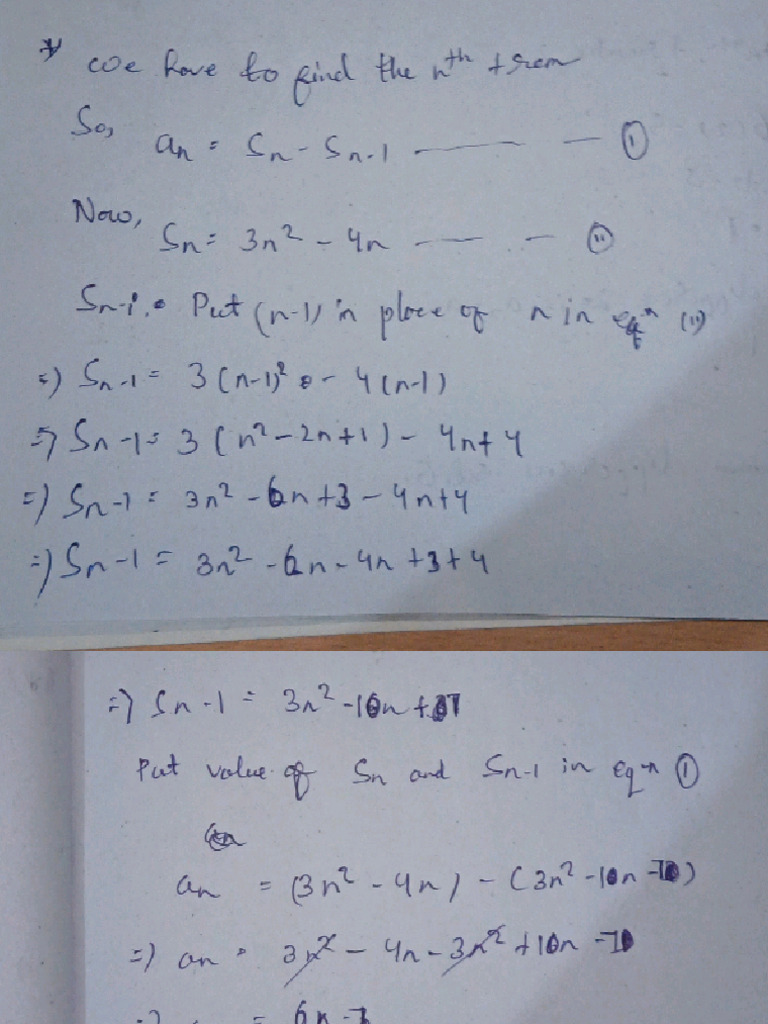 * We have to find the nth trem
So,
an = Sn - Sn-1 ——— — ①
Now,
Sn = 3n² - 4n —— - ⑪
Sn-1. Put (n-1) in place of n in eqn (11)
=) Sn-1 = 3(n-1)² - 4(n-1)
=) Sn-1 = 3(n²-2n+1) - 4n+4
=) Sn-1 = 3n² - 6n+3 - 4n+4
=) Sn-1 = 3n² - 6n - 4n +3+4
=) Sn-1 = 3n² - 10n + 7
Put value of Sn and Sn-1 in eqn ①
an = (3n² - 4n) - (3n² - 10n
=) an = 3n² - 4n - 3n² + 10n - 7
= 6n - 7